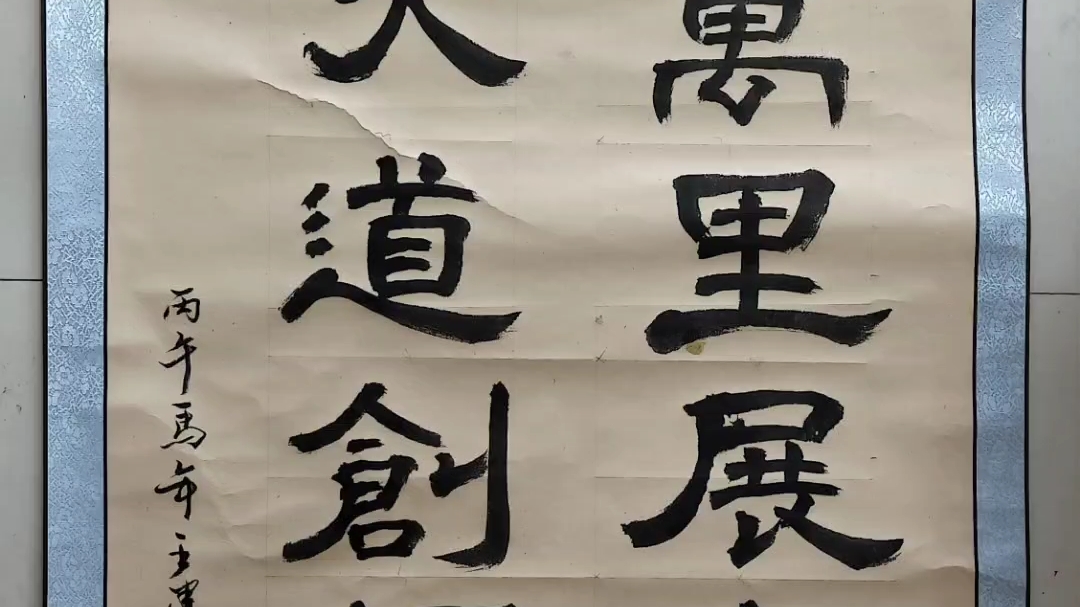 萬里展
道創
丙午馬年王